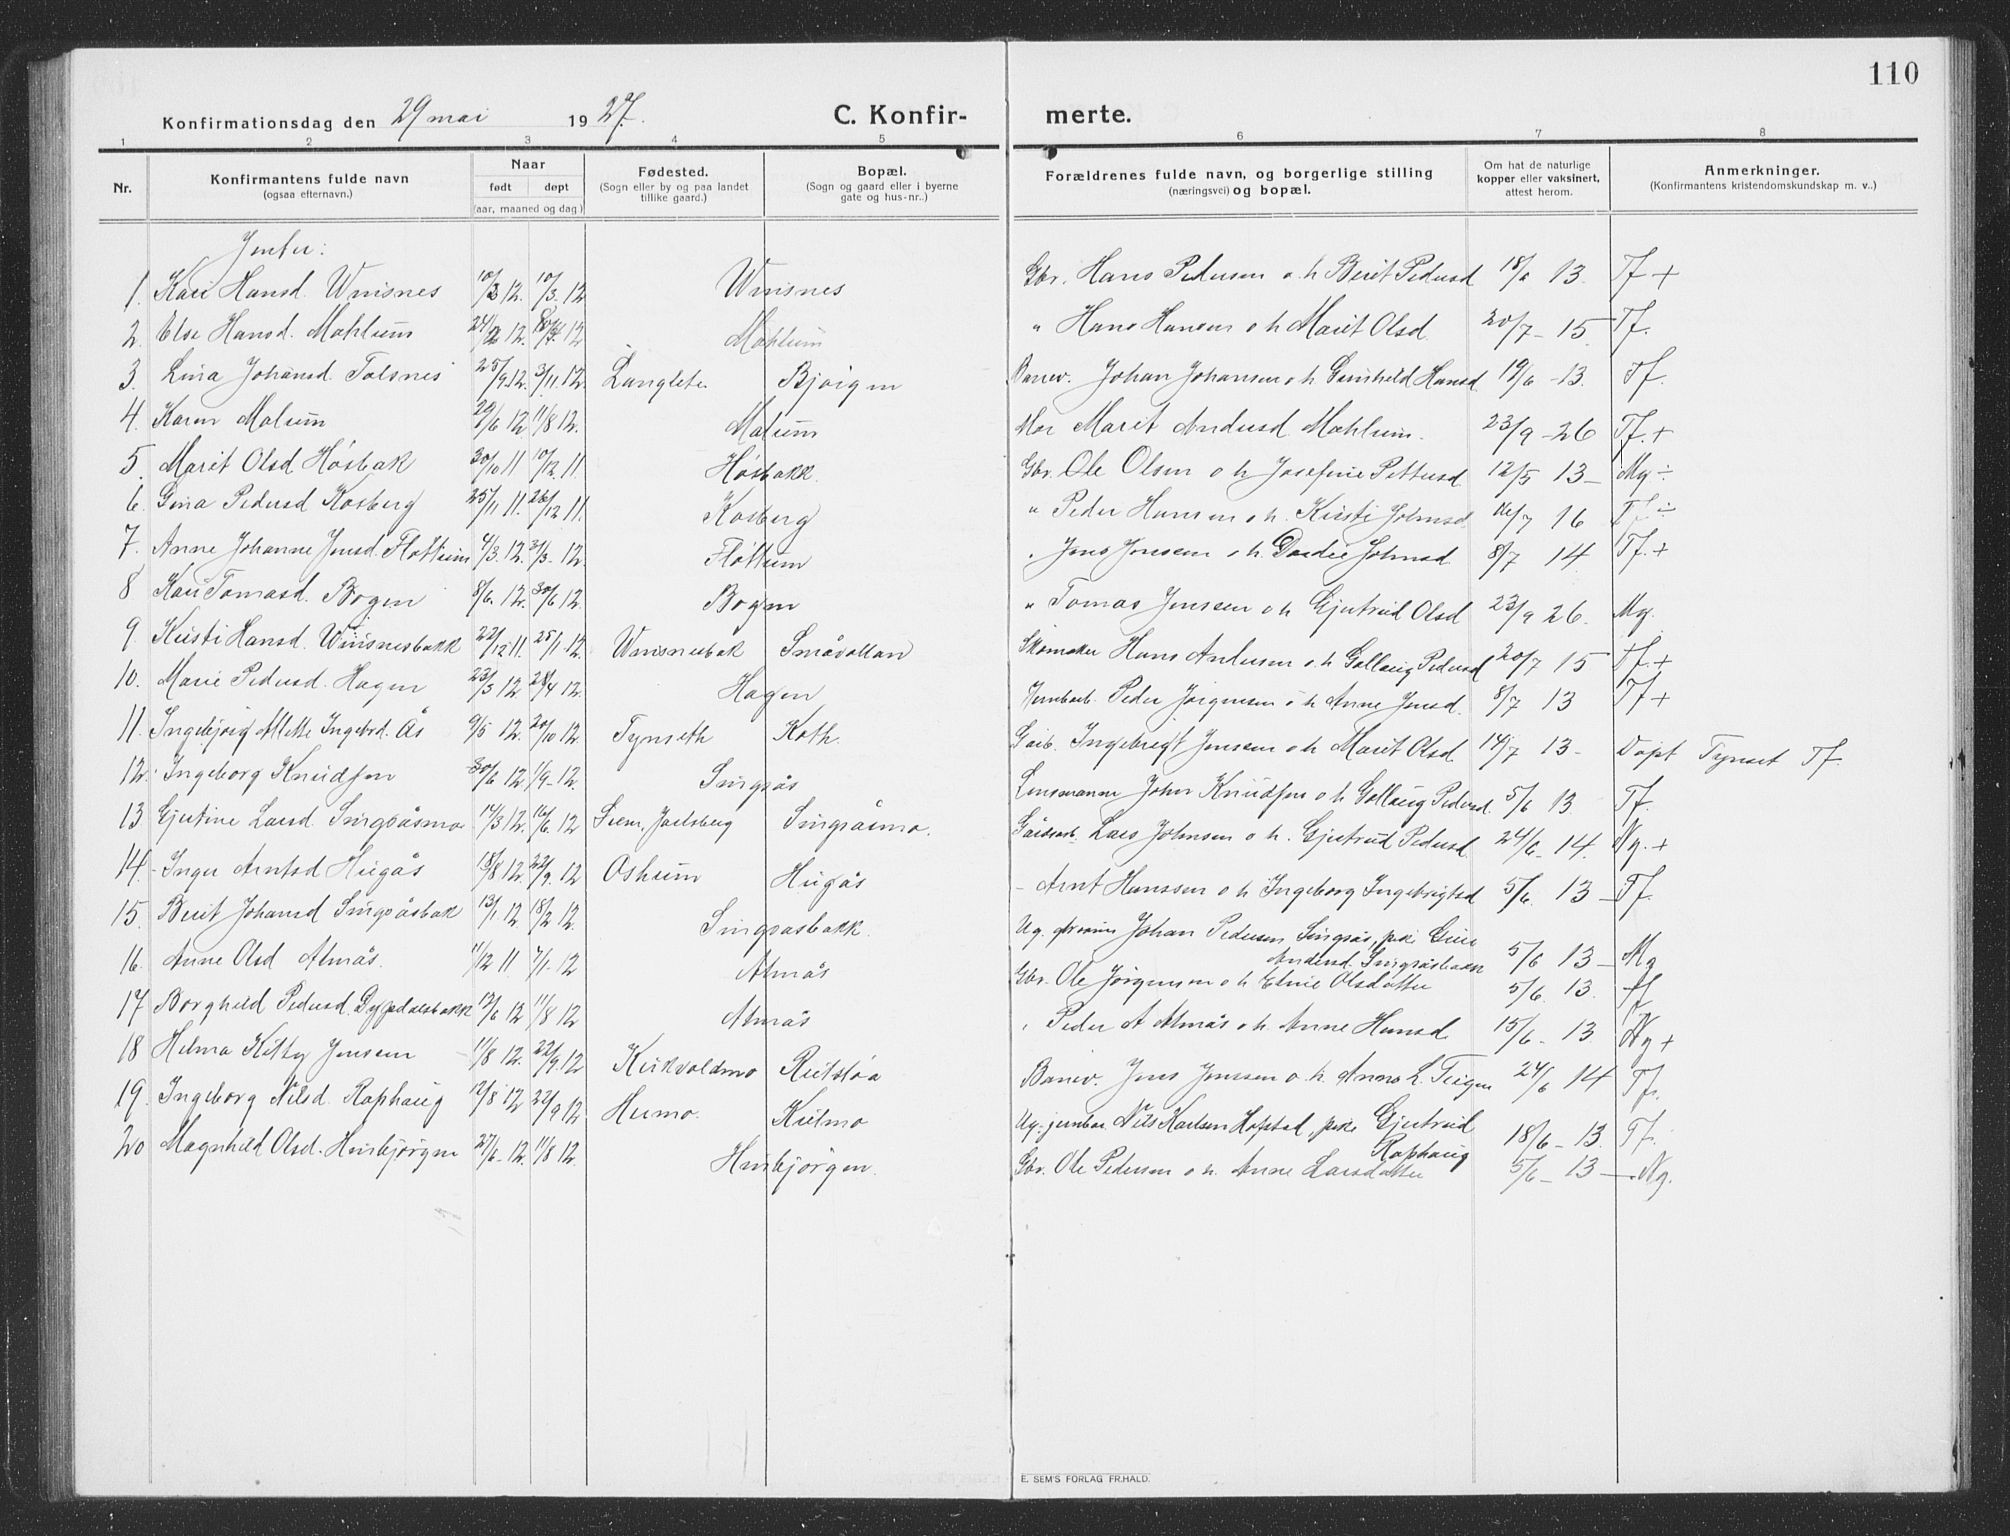 110
Konfirmationsdag den 29 mai 1927. C. Konfir- merte.
1 2 3 4 5 6 7 8
Nr. Konfirmantens fulde navn Naar Fødested. Bopæl. Forældrenes fulde navn, og borgerlige stilling Om hat de naturlige Anmerkninger.
(ogsaa efternavn.) født døpt (Sogn eller by og paa landet (Sogn og gaard eller i byerne (næringsvei) og bopæl. kopper eller vaksinert, (Konfirmantens kristendomskundskap m. v..)
(aar, maaned og dag) tillike gaard.) gate og hus-nr..) attest herom.
Jenter:
1. Kari Hansd. Winsnes 10/3 12. 10/3. 12 Winsnes Gbr. Hans Pedersen o. h Berit Pedersd 18/6 13. Tf +
2. Else Hansd. Mohlum 24/2 12 12 Mohlum " Hans Hansen o h Marit Olsd 20/7 - 15. Tf.
3. Lina Johansd. Tolsnes 25/9 12. 3/11. 12. Langlete Bjørgen Banev. Johan Johansen o h Gunhild Hansd. 19/6 - 13. Tf.
4. Karen Molum 29/6 12 11/8 12. Molum Mor Marit Andersd Mohlum. 23/9 - 26 Tf. +
5. Marit Olsd Hösbak 30/10 11 10/12. 11. Hösbakk. Gbr. Ole Olsen o h Josefine Pettersd 12/5 13 - Mg ÷
6. Gina Pedersd Kosberg 25/11 11. 26/12 11. Kosberg " Peder Hansen o h. Kirsti Johnsd. 16/7 16 Tf ÷
7. Anne Johanne Jensd. Flottum 4/3. 12. 31/3 - 12. Flöttum " Jens Jensen o h. Dordie Johnsd 8/7 14 Tf. +
8 Kari Tomasd. Bogen 8/6. 12. 30/6 12. Bogen " Tomas Jenssen o h Gjertrud Olsd 23/9 26. Mg.
9. Kirsti Hansd. Winsnesbakk 22/12 11. 25/1. 12. Winsnesbak Småvollan Skomaker Hans Andersen o. h Gollaug Pedersd 20/7 15 Tf. +
10. Marie Pedersd. Hagen 23/3 12 28/4 12. Hagen Jernbarb. Peder Jörgensen o h Anne Jensd. 8/7 13 Tf +
11. Ingebjörg Alette Ingebrd. Ås 9/5 12. 20/10 12. Tynseth Koth. Gårb. Ingebrigt Jensen o h Marit Olsd 14/7 13 - Döpt Tynset Tf.
12. Ingeborg Knudsen 30/6 12 1/9 - 12. Singsås Lensmann John Knudsen o h Gollaug Pedersd 5/6 13 Tf.
13 Gjertine Larsd. Singsåsmo 14/3 12. 16/6. 12 Sem, Jarlsberg Singsåsmo. Gårdsarb. Lars Johnsen o h. Gjertrud Pedersd. 24/6 - 14. Ng. +
14. Inger Arntsd Hugås 18/8 12. 22/9. 12 Oshum Hugås - Arnt Hanssen o h Ingeborg Ingebrigtsd 5/6. 13 - Tf.
15. Berit Johansd Singsåsbak 13/1 12 18/2 12. Singsåsbakk. Ug. Johan Pedersen Singsås, pike Guri
Andersd. Singsåsbakk 5/6 13 - Mg
16. Anne Olsd Almås. 11/12 11 7/1. 12 Almås Gbr. Ole Jörgensen o h Eline Olsdatter 5/6. 13. Tf
17 Borghild Pedersd. Dypdalsbakk 12/6 12 11/8 12 Almås " Peder A Almås o h Anne Hansd 15/6 - 13. Ng +
18 Helma Kitty Jensen 11/8 12. 22/9. 12 Kirkvoldmo Reitstöa Banev. Jens Jenssen o. h. Anna L. Teigen 24/6 14 Tf.
19. Ingeborg Nilsd. Raphaug 12/8 12 22/9 12 Hermo. Kulmo Ug. jernbar. Nils Karlsen Hofstad, pike Gjertrud
Raphaug 18/6 - 13 Tf.
20 Magnhild Olsd. Husbjörgen 27/6 - 12. 11/8 12. Husbjörgen. Gbr. Ole Pedersen o h. Anne Larsdatter 5/6 - 13 - Ng.
E. SEM'S FORLAG FR.HALD.